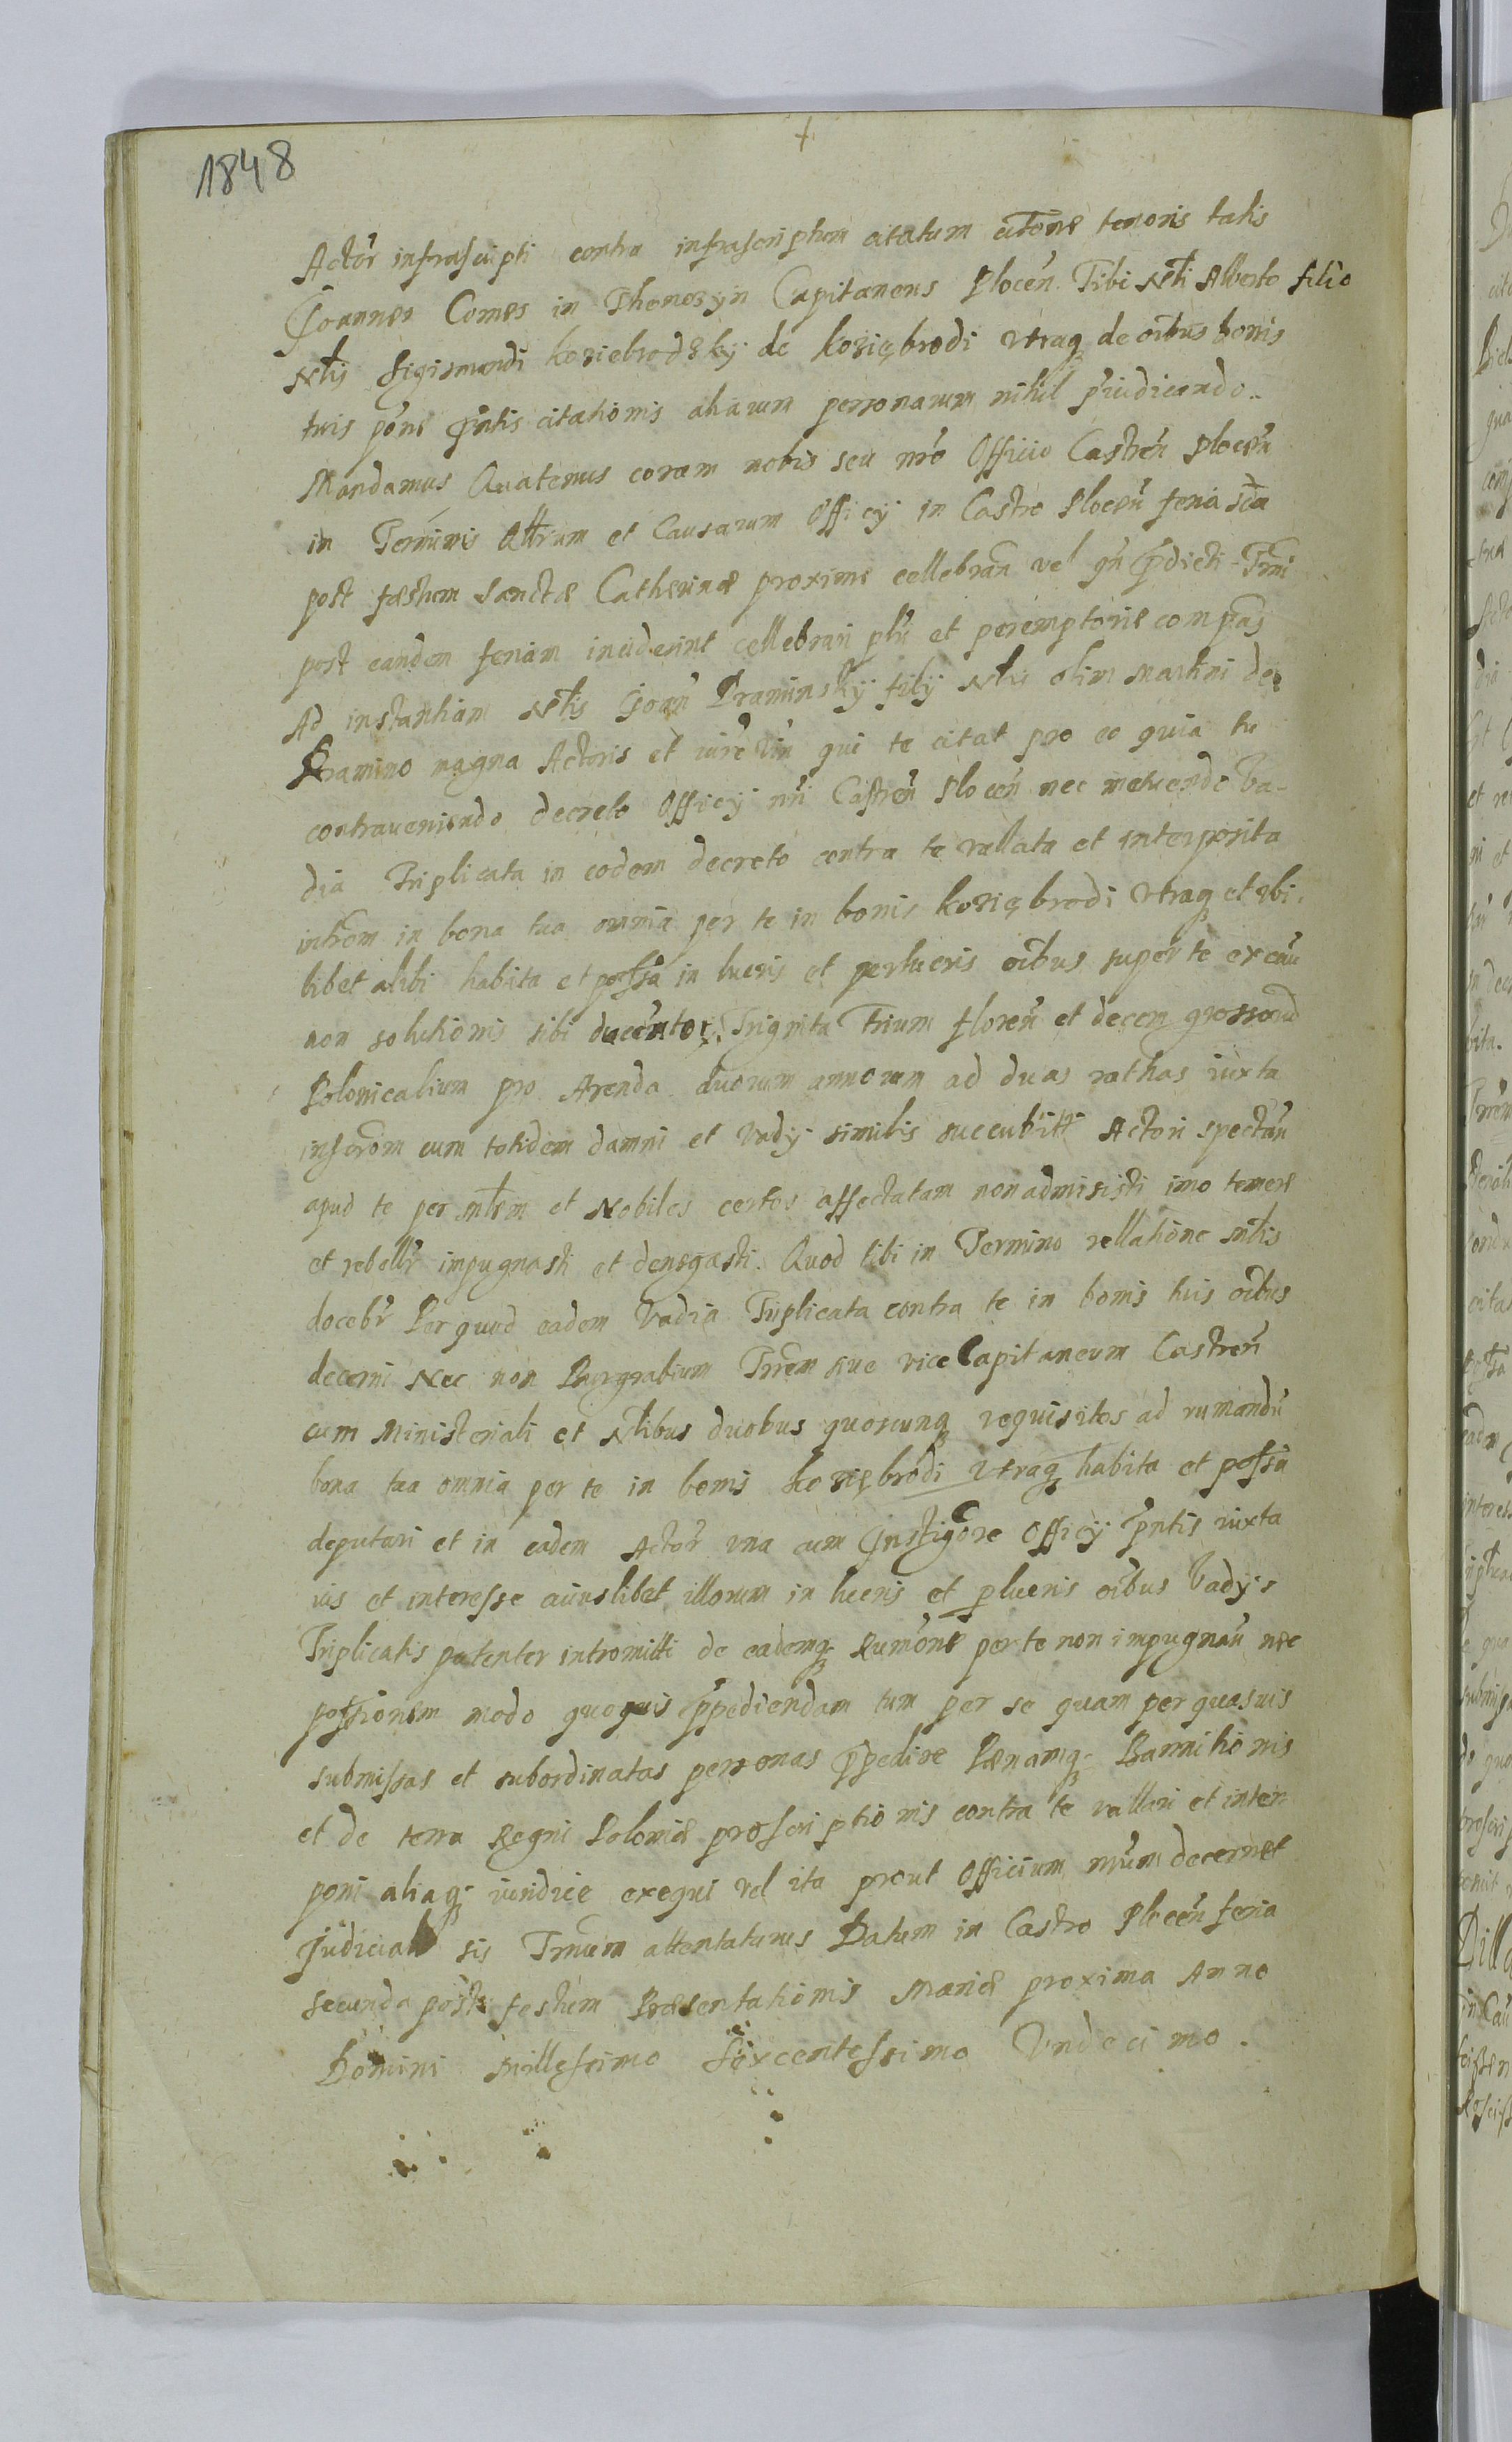 1848
Actor infrascripti contra infrascriptum citatum citõne tenoris talis
Joannes Comes in Thenczyn Capitaneus Plocen Tibi Nbli Alberto filio
Nblis Sigismundi koziebrodzkÿ de koziębrodi vtraq de oibus bonis
tuis põne pñtis citationis aliarum personarum nihil priudicando.
Mandamus Quatenus coram nobis seu nrõ Officio Castreñ Ploceñ
in Terminis Qllrum et Causarum Officÿ in Castro Ploceñ feria scda
post fæstum Sanctæ Catherinæ proxime cellebran vel qñ prdicti Trmi
post eandem feriam inciderint cellebrari plr et peremptorie compas
Ad instantiam Nblis Joañ Draminskÿ filÿ Nblis olim Martini de
Dramino magna Actoris et iure viñ qui te citat pro eo quia tu
contraueniendo decreto Officÿ nri Castreñ Ploceñ nec metuendo Va-
dia Triplicata in eodem decreto contra te vallata et interposita
intrõm in bona tua omnia per te in bonis koziębrodi vtraq et vbi-
libet alibi habita et possa in lucris et perlucris oibus super te ex cau
non solutionis sibi ducentor Triginta Trium floreñ et decem grossorũ
Polonicalium pro Arenda duorum annorum ad duas rathas iuxta
inscrõm cum totidem damni et Vadÿ similis succubitti Actori spectañ
apud te per mlem et Nobiles certos affectatam non admisisti imo temere
et rebellr impugnasti et denegasti. Quod tibi in Termino rellatione mlis
docebr Per quod eadem Vadia Triplicata contra te in bonis tuis oibus
decerni Nec non Burgrabium Trrem siue vice Capitaneum Castreñ
cum Ministeriali et Nblibus duobus quoscunq requisitos ad rumandũ
bona tua omnia per te in bonis koziębrodi vtraq habita et possa
deputari et in eadem Actor vna cum Instigõre Officÿ pñtis iuxta
ius et interesse cuiuslibet illorum in lucris et plucris oibus Vadÿs
Triplicatis potenter intromitti de eademq Rumõne per te non impugnañ nec
possionem modo quouis prpediendam tum per se quam per quasuis
submissas et subordinatas personas prpedire Pænamq Bannitionis
et de terra Regni Poloniæ proscriptionis contra te vallari et inter-
poni aliaq iuridice exequi vel ita prout Officium nrum decernet
Judicial sis Trnum attentaturus Datum in Castro Ploceñ feria
secunda post festum Præsentationis Mariæ proxima Anno
Domini Millessimo Sexcentessimo Vndecimo.